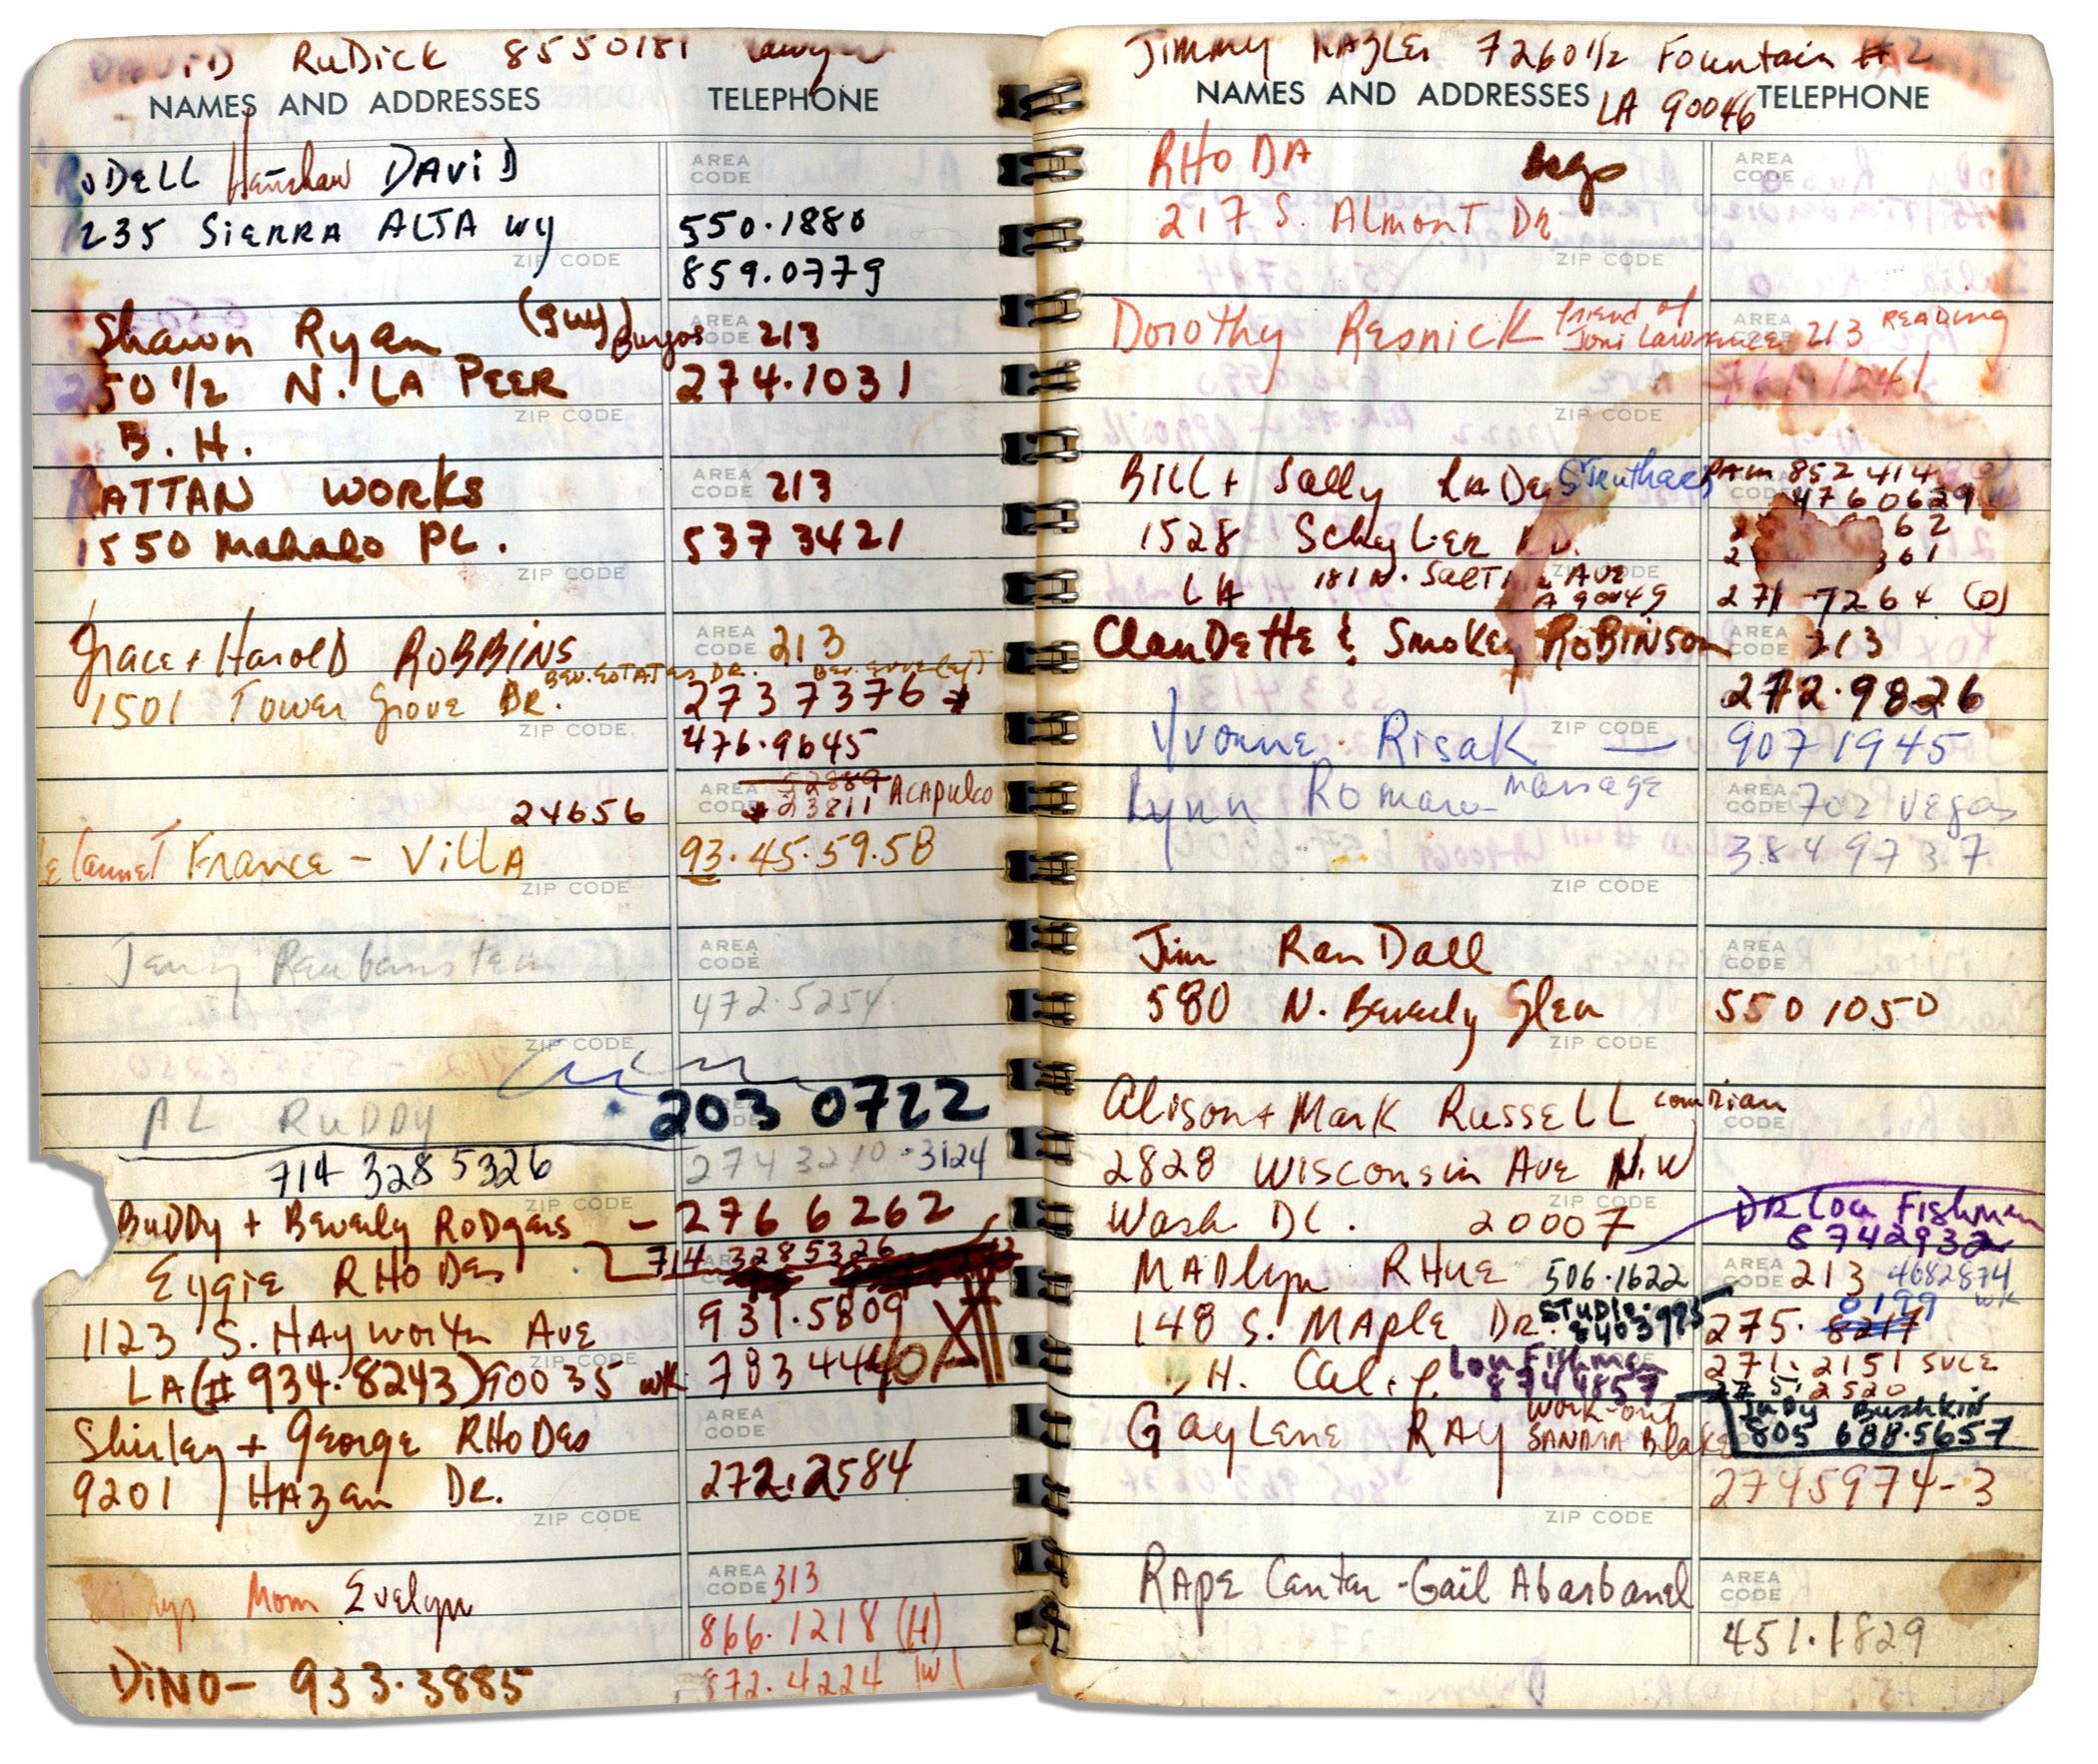 DAVID RUDICK 8550181 lawyer
NAMES AND ADDRESSES TELEPHONE
RODELL Henshaw DAVID AREA CODE
1235 SIERRA ALTA WY 550.1880
ZIP CODE 859.0779
Shawn Ryan (guy) Burgos AREA CODE 213
250 1/2 N. LA PEER 274.1031
ZIP CODE
B.H.
RATTAN WORKS AREA CODE 213
1550 Mahalo PL. 537 3421
ZIP CODE
Grace + Harold ROBBINS AREA CODE 213
BEV. ESTATES DR.
1501 Tower Grove DR. 273 7376
ZIP CODE 476.9645
AREA CODE 52889
24656 23811 Acapulco
Le Cannet France - VillA 93.45.59.58
ZIP CODE
Jerry AREA CODE
472.5254
ZIP CODE
AL RUDDY 203 0722
714 328 5326 274 3210 .3124
ZIP CODE
BuDDy + Beverly RoDgers - 276 6262
Eygie RHoDes 714 3285326
1123 S. HAyworth Ave 931.5809
ZIP CODE
LA (# 934.8243) 90035 wk 783 4440
Shirley + George RHoDes AREA CODE
9201 HAzen Dr. 272.2584
ZIP CODE
Mom Evelyn AREA CODE 313
866.1218 (H)
DINO - 933.3885 872.4224 (w)
Jimmy NAZLEI 7260 1/2 Fountain #2
NAMES AND ADDRESSES LA 90046 TELEPHONE
RHODA AREA CODE
217 S. Almont Dr
ZIP CODE
Dorothy Resnick friend of Joni Lawrence AREA CODE 213 READING
ZIP CODE
Bill + Sally Struthers PAM 852 414
4760629
1528 Schyler 62
361
ZIP CODE
LA 181 N. Saltair AVE 90049 271-7264 (o)
Claudette & Smokey Robinson AREA CODE 213
272.9826
Yvonne Risak — ZIP CODE 907 1945
Lynn Roman - massage AREA CODE 702 Vegas
384 9737
ZIP CODE
Jim RanDall AREA CODE
580 N. Beverly Glen 550 1050
ZIP CODE
Alison + Mark Russell comedian AREA CODE
2828 Wisconsin Ave N.W
ZIP CODE
Wash DC. 20007 DR Lou Fishman
8742932
MADlyn RHue 506.1622 AREA CODE 213 4682874 wk
148 S. MAple Dr. STUDIO 8403995 275. 8217 0199
H. Calif. Lou Fishman 8744857 271.2151 SVCE
2520
GAyLene RAy work-out SANDRA Blake Judy Bushkin
805 688.5657
2745974-3
ZIP CODE
RApe Center - Gail Abarbanel AREA CODE
451.1829